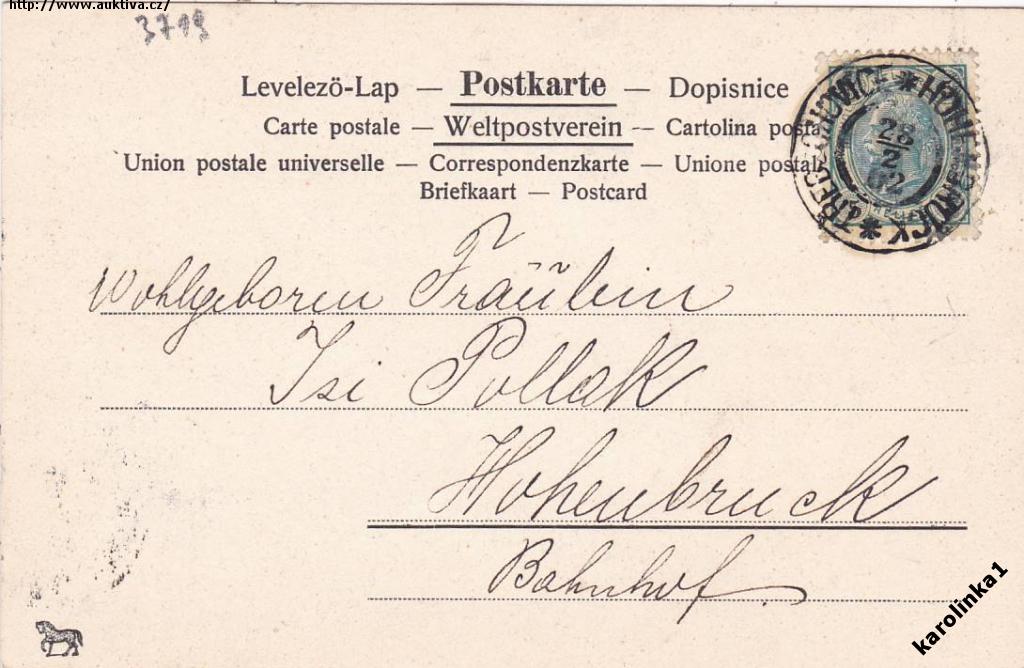 http://www.auktiva.cz/
3719
Levelezö-Lap — Postkarte — Dopisnice
Carte postale — Weltpostverein — Cartolina posta
Union postale universelle — Correspondenzkarte — Unione postal
Briefkaart — Postcard
28
2
02
Wohlgeboren Fräulein
Isi Pollak
Hohenbruck
Bahnhof
karolinka1